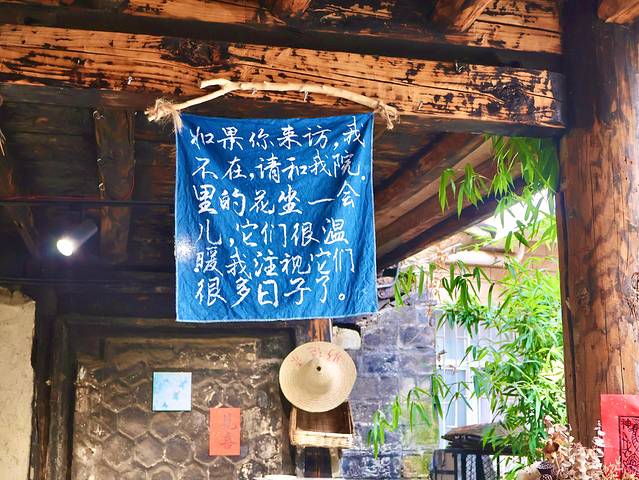 如果你来访,我
不在,请和我院
里的花坐一会
儿,它们很温
暖我注视它们
很多日子了。
见喜